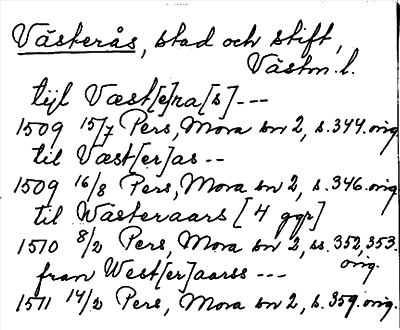 Västerås, stad och stift,
Västm. l.
tijl Væst[e]ra[s] ---
1509 15/7 Pers, Mora sn 2, s. 344. orig.
til Væst[er]as --
1509 16/8 Pers, Mora sn 2, s. 346. orig.
til Wästeraars [4 ggr]
1510 8/2 Pers, Mora sn 2, ss. 352, 353.
orig.
fran West[er]aarss ---
1511 14/2 Pers, Mora sn 2, s. 359. orig.